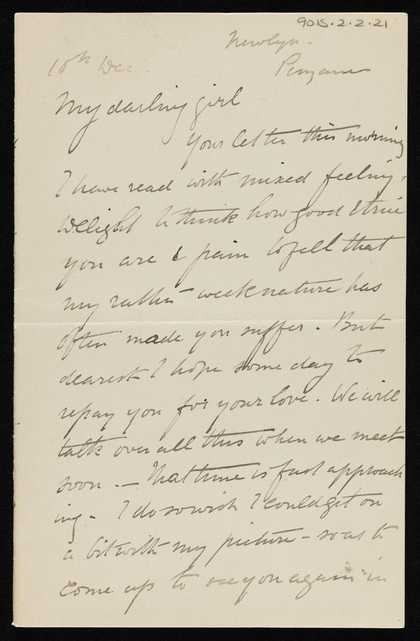 9015.2.2.21
Newlyn.
Penzance
10th Dec.
My darling girl
Your letter this morning
I have read with mixed feeling.
Delight to think how good & true
you are & pain to feel that
my rather weak nature has
often made you suffer. But
dearest I hope some day to
repay you for your love. We will
talk over all this when we meet
soon. — That time is fast approach
ing. I do so wish I could get on
a bit with my picture – so as to
come up to see you again in